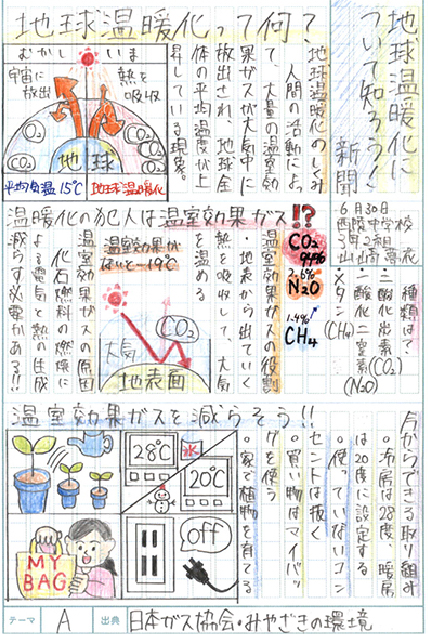 地球温暖化に
ついて知ろうく
新聞
6月30日
西陵中学校
3年2組
地球温暖化って何？
むかし
いま
宇宙に
放出
熱を
吸収
CO₂
CO₂
CO₂
CO₂
CO₂
地球
平均気温15℃
地球温暖化
地球温暖化のしくみ
人間の活動によっ
て、大量の温室効
果ガスが大気中に
放出され、地球全
体の平均温度が上
昇している現象。
温暖化の犯人は温室効果ガス!?
種類は？
・二酸化炭素(CO₂)
・一酸化二窒素(N₂O)
・メタン(CH₄)
CO₂
94%
N₂O
1.4%
CH₄
温室効果ガスの役割
・地表から出ていく
熱を吸収して、大気
を温める
温室効果が
ないと-19℃
CO₂
大気
地表面
温室効果ガスの原因
化石燃料の燃焼に
よる電気と熱の生成
減らす必要がある!!
温室効果ガスを減らそう!!
今からできる取り組み
・冷房は28度、暖房
は20度に設定する
・使っていないコン
セントは抜く
・買い物はマイバッ
グを使う
・家で植物を育てる
28℃
氷
20℃
MY
BAG
off
テーマ
A
出典
日本ガス協会・みやざきの環境